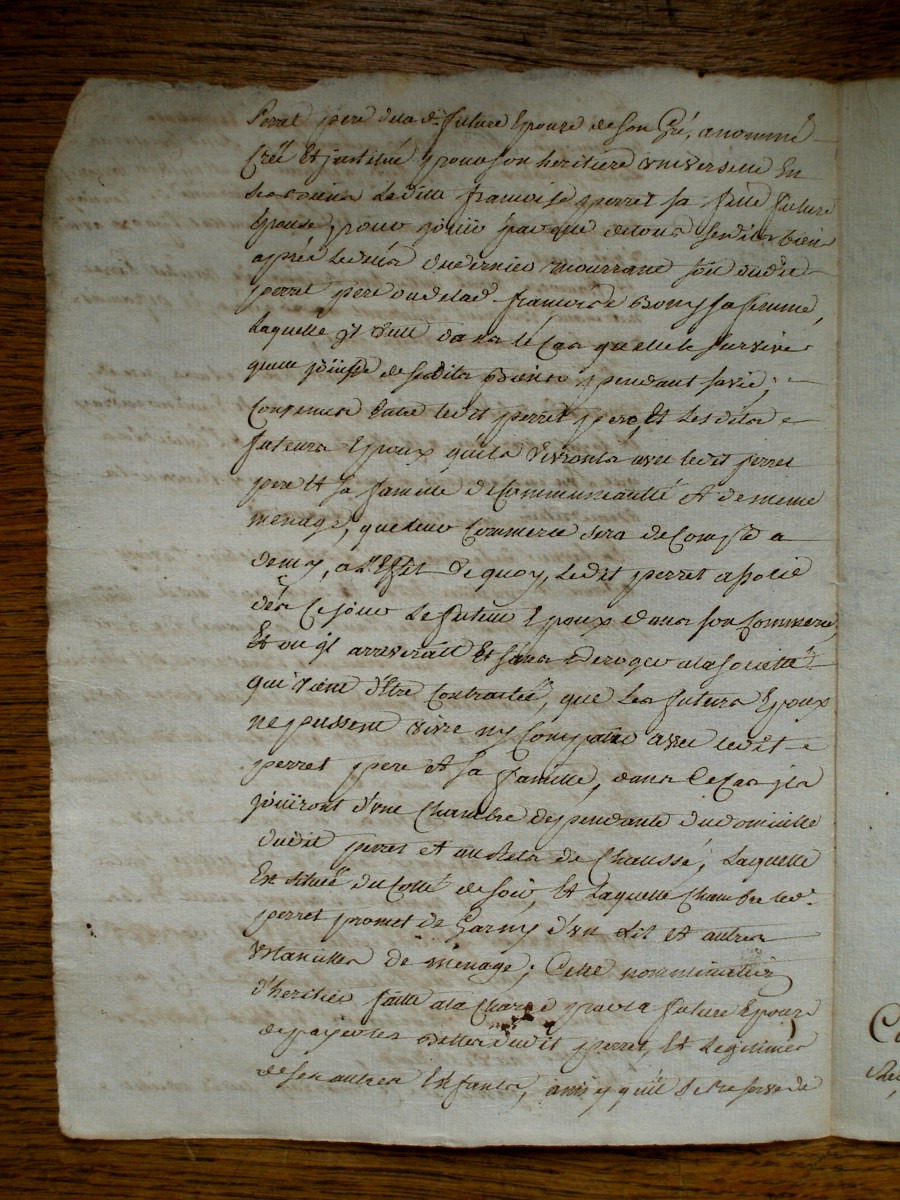 Perret pere de la dte future Epouze de son Gré, a nommé
Créé Et jnstitué pour son heritiere universelle En
ses biens Laditte francoise perret sa fille future
Epouse, pour joüir par que de tous sesdits biens
aprés le decés du dernier mourrant soit dudit
perret pere ou de lad. francoise Bony sa femme,
Laquelle jl veut dans le Cas quelle le survive
quelle joüisse de sesdits Biens pendant sa vie;
Convenus Entre ledit perret pere, Et Lesdits
futeurs Epoux quils vivronts avec ledit perret
pere Et sa famille de Communeauté Et de meme
menage, que leur Commerce sera de Compte a
demy, a L'Effet de quoy, Ledit perret associe
dés Ce jour Le futeur Epoux dans son Commerce,
Et ou jl arriverait Et sans Deroger a la societté
qui vient d'étre Contractéé, que Les futurs Epoux
ne pussent vivre ny Compatir avec ledit
perret pere et sa famille, dans Ce Cas jls
joüiront d'vne Chambre dependante du domicille
dudit perret et au Rets de Chaussé, Laquelle
Est située du Coté de soir, Et Laquelle Chambre led.
perret promet de Garny d'un Lit et autres
vstancilles de menage; Cette nommination
d'heritier faitte a la Charge par la future Epouze
de payer les Dettes dudit perret, Et Legitimes
de ses autres Enfants, ainsy quil Se Reserve de